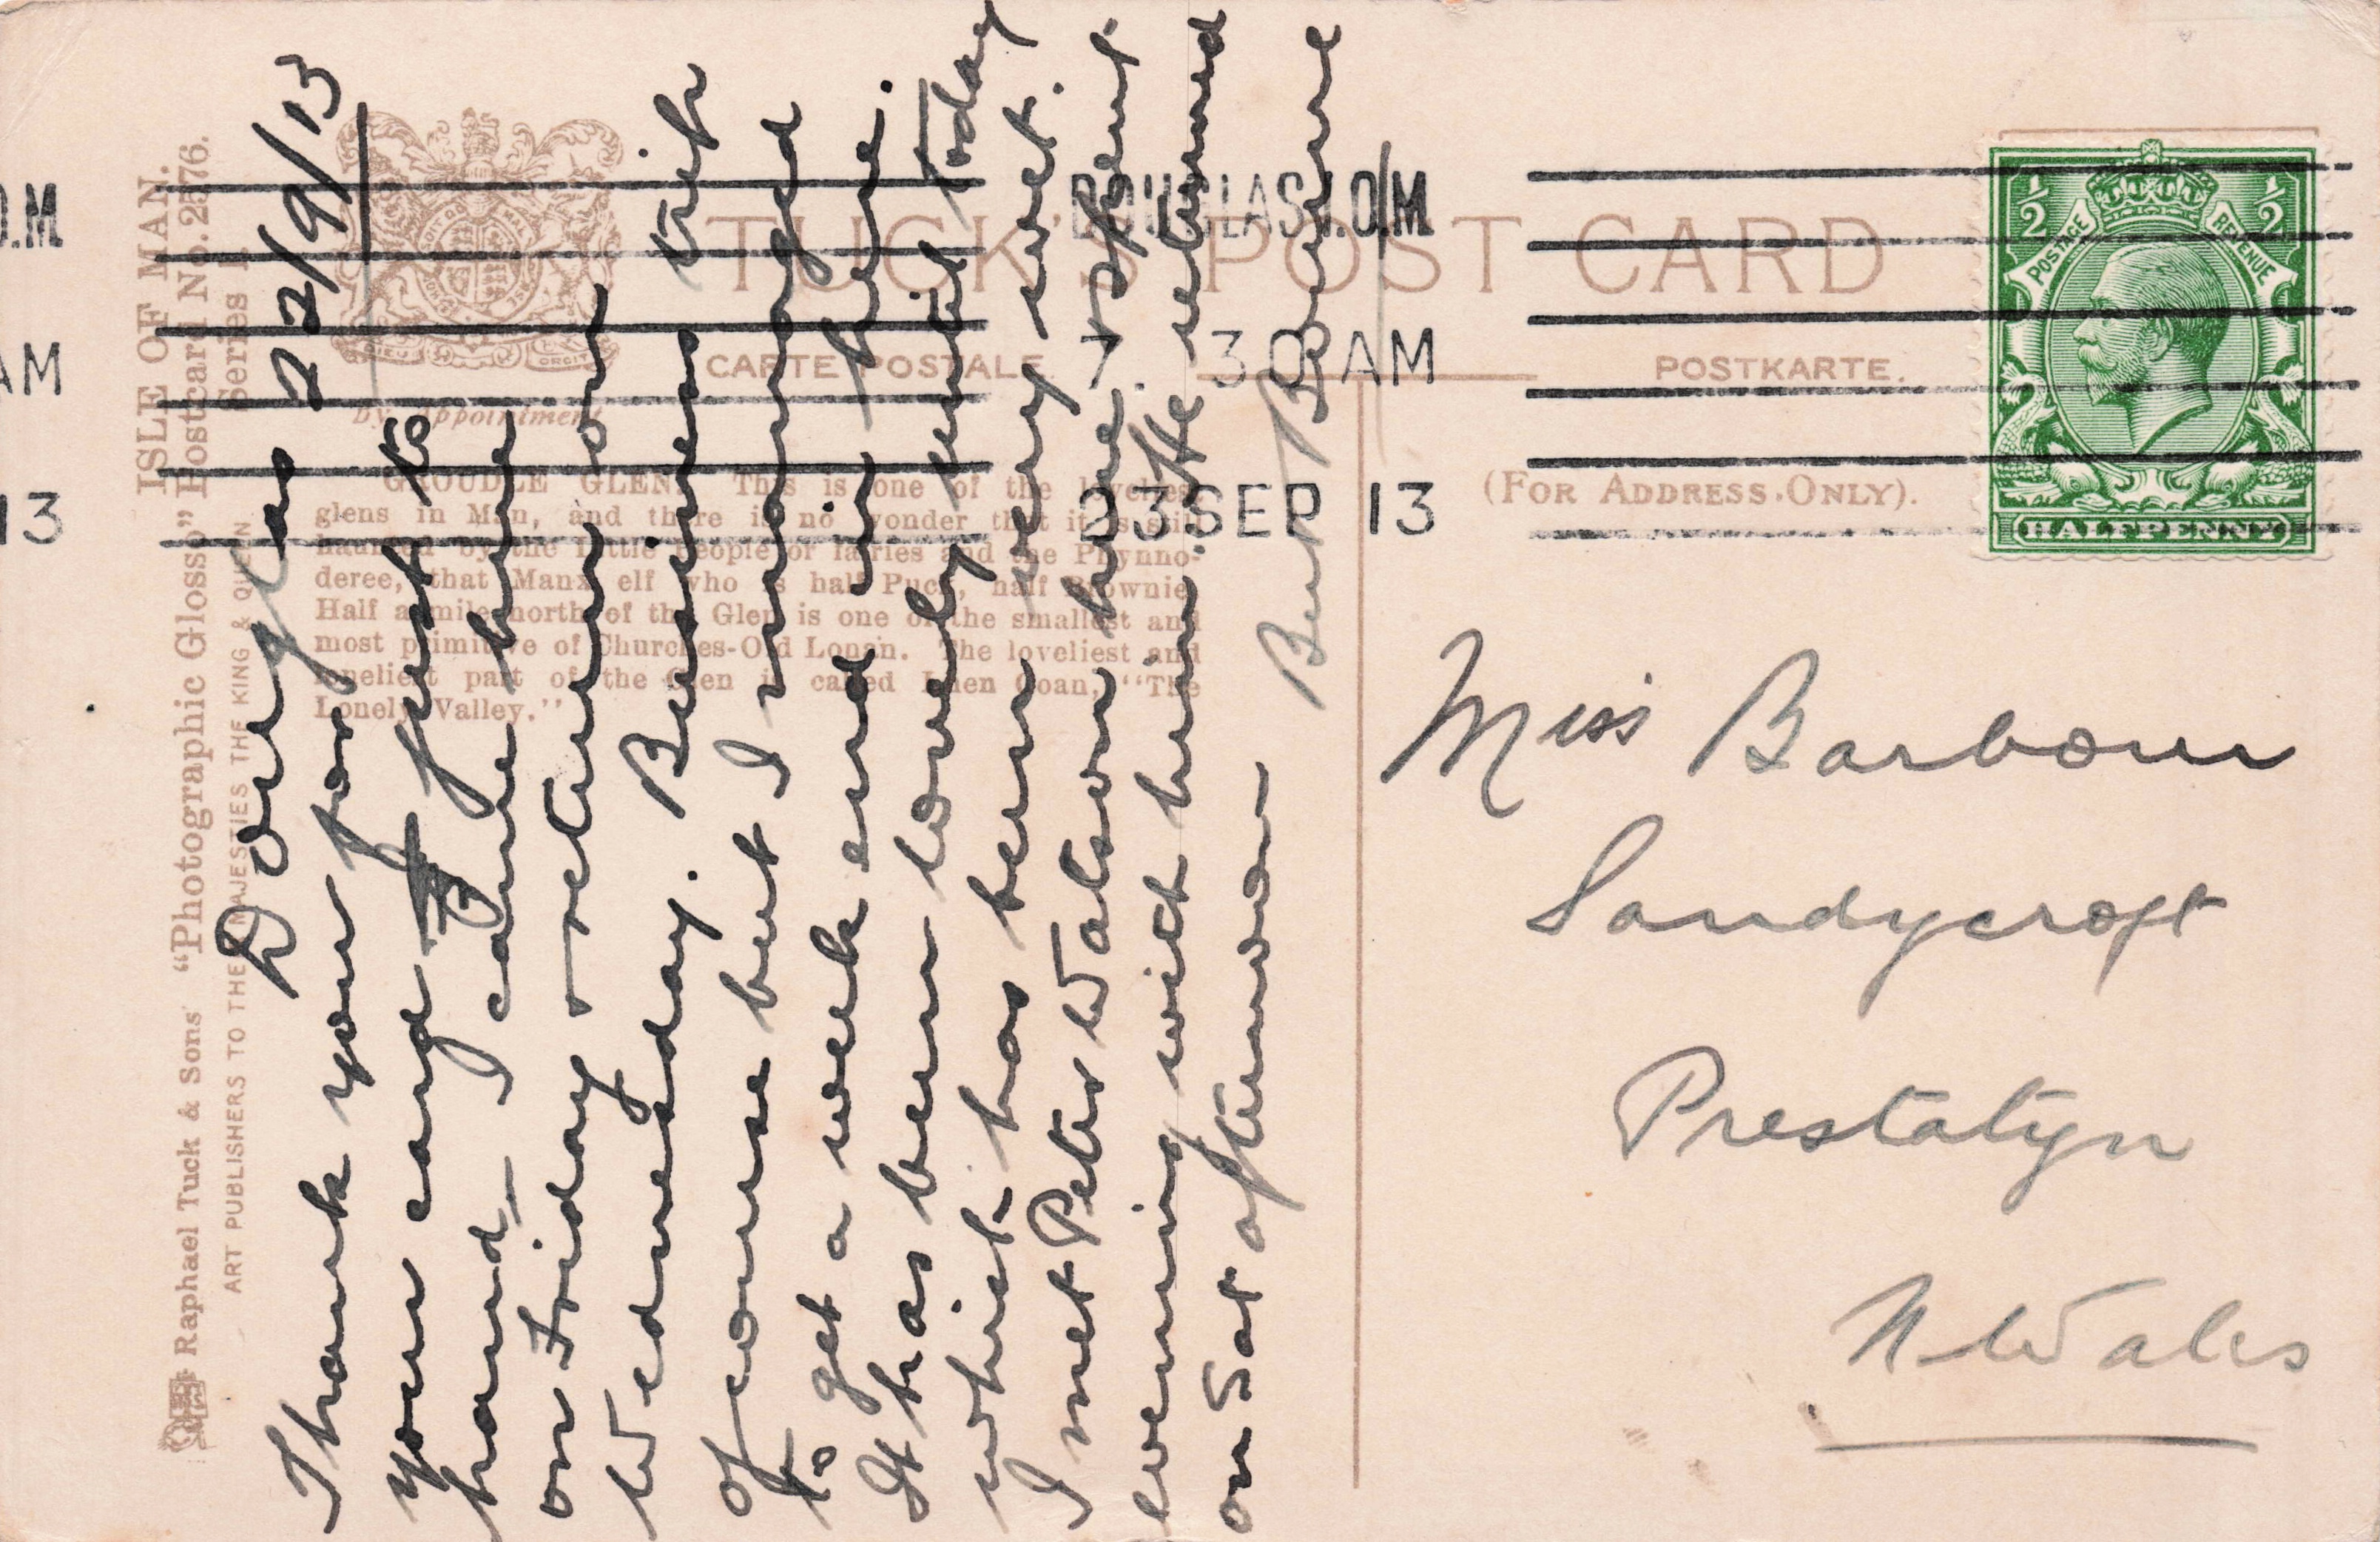 ISLE OF MAN.
Raphael Tuck & Sons' "Photographic Gloss" Postcard No. 2576.
Series I.
ART PUBLISHERS TO THEIR MAJESTIES THE KING & QUEEN
By Appointment
TUCK'S POST CARD
CARTE POSTALE
POSTKARTE.
(FOR ADDRESS ONLY).
GROUDLE GLEN. This is one of the loveliest
glens in Man, and there is no wonder that it is still
haunted by the little people or fairies and the Phynno-
deree, that Manx elf who is half Puck, half Brownie.
Half a mile north of the Glen is one of the smallest and
most primitive of Churches-Old Lonan. The loveliest and
loneliest part of the Glen is called Lhen Coan, "The
Lonely Valley."
DOUGLAS I.O.M
7. 30 AM
23 SEP 13
O.M
AM
13
POSTAGE
REVENUE
1/2
1/2
HALFPENNY
Douglas 22/9/13
Thank you for
your card just to
hand – I came here
on Friday & return on
Wednesday. Business trip
of course but I managed
to get a week end in here.
It has been lovely until Today
which has been very wet.
I met Peter Watson here & spent
evening with him. He returned
on Sat afternoon
Bert Bourne
Miss Barbour
Sandycroft
Prestatyn
N Wales